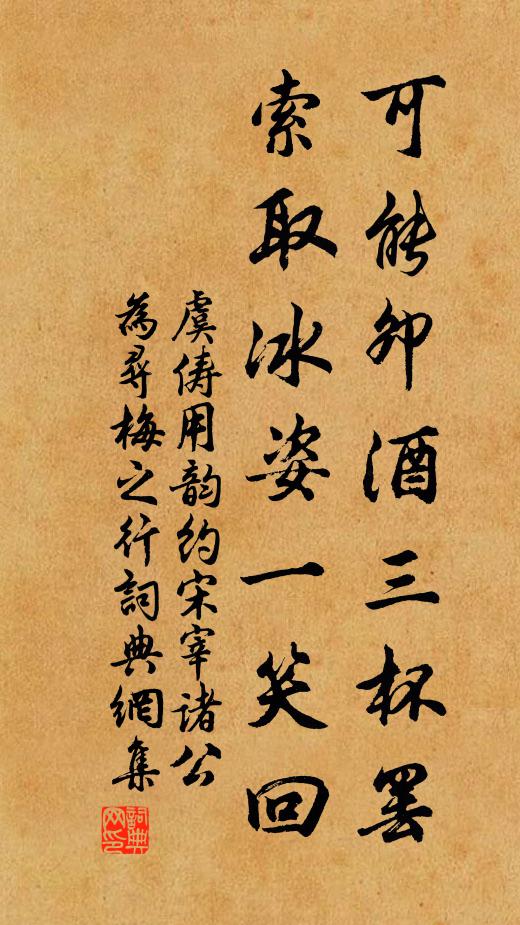 可能卯酒三杯罷
索取冰姿一笑回
虞儔用韵約宋宰諸公
為尋梅之行詞典網集
詞典网印